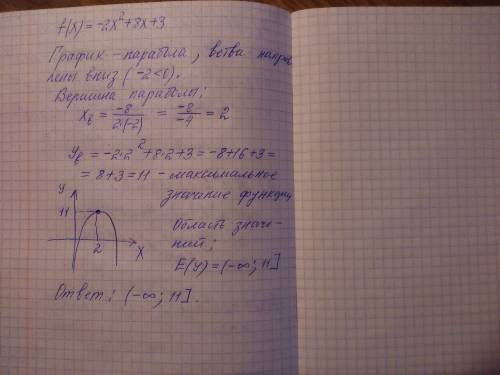 f(x) = -2x²+8x+3
График - парабола, ветви направ
лены вниз (-2<0).
Вершина параболы:
xв = -8/2·(-2) = -8/-4 = 2
yв = -2·2²+8·2+3 = -8+16+3 =
= 8+3 = 11 - максимальное
значение функции
y
11
2
x
Область значе-
ний:
E(y) = (-∞; 11]
Ответ: (-∞; 11].